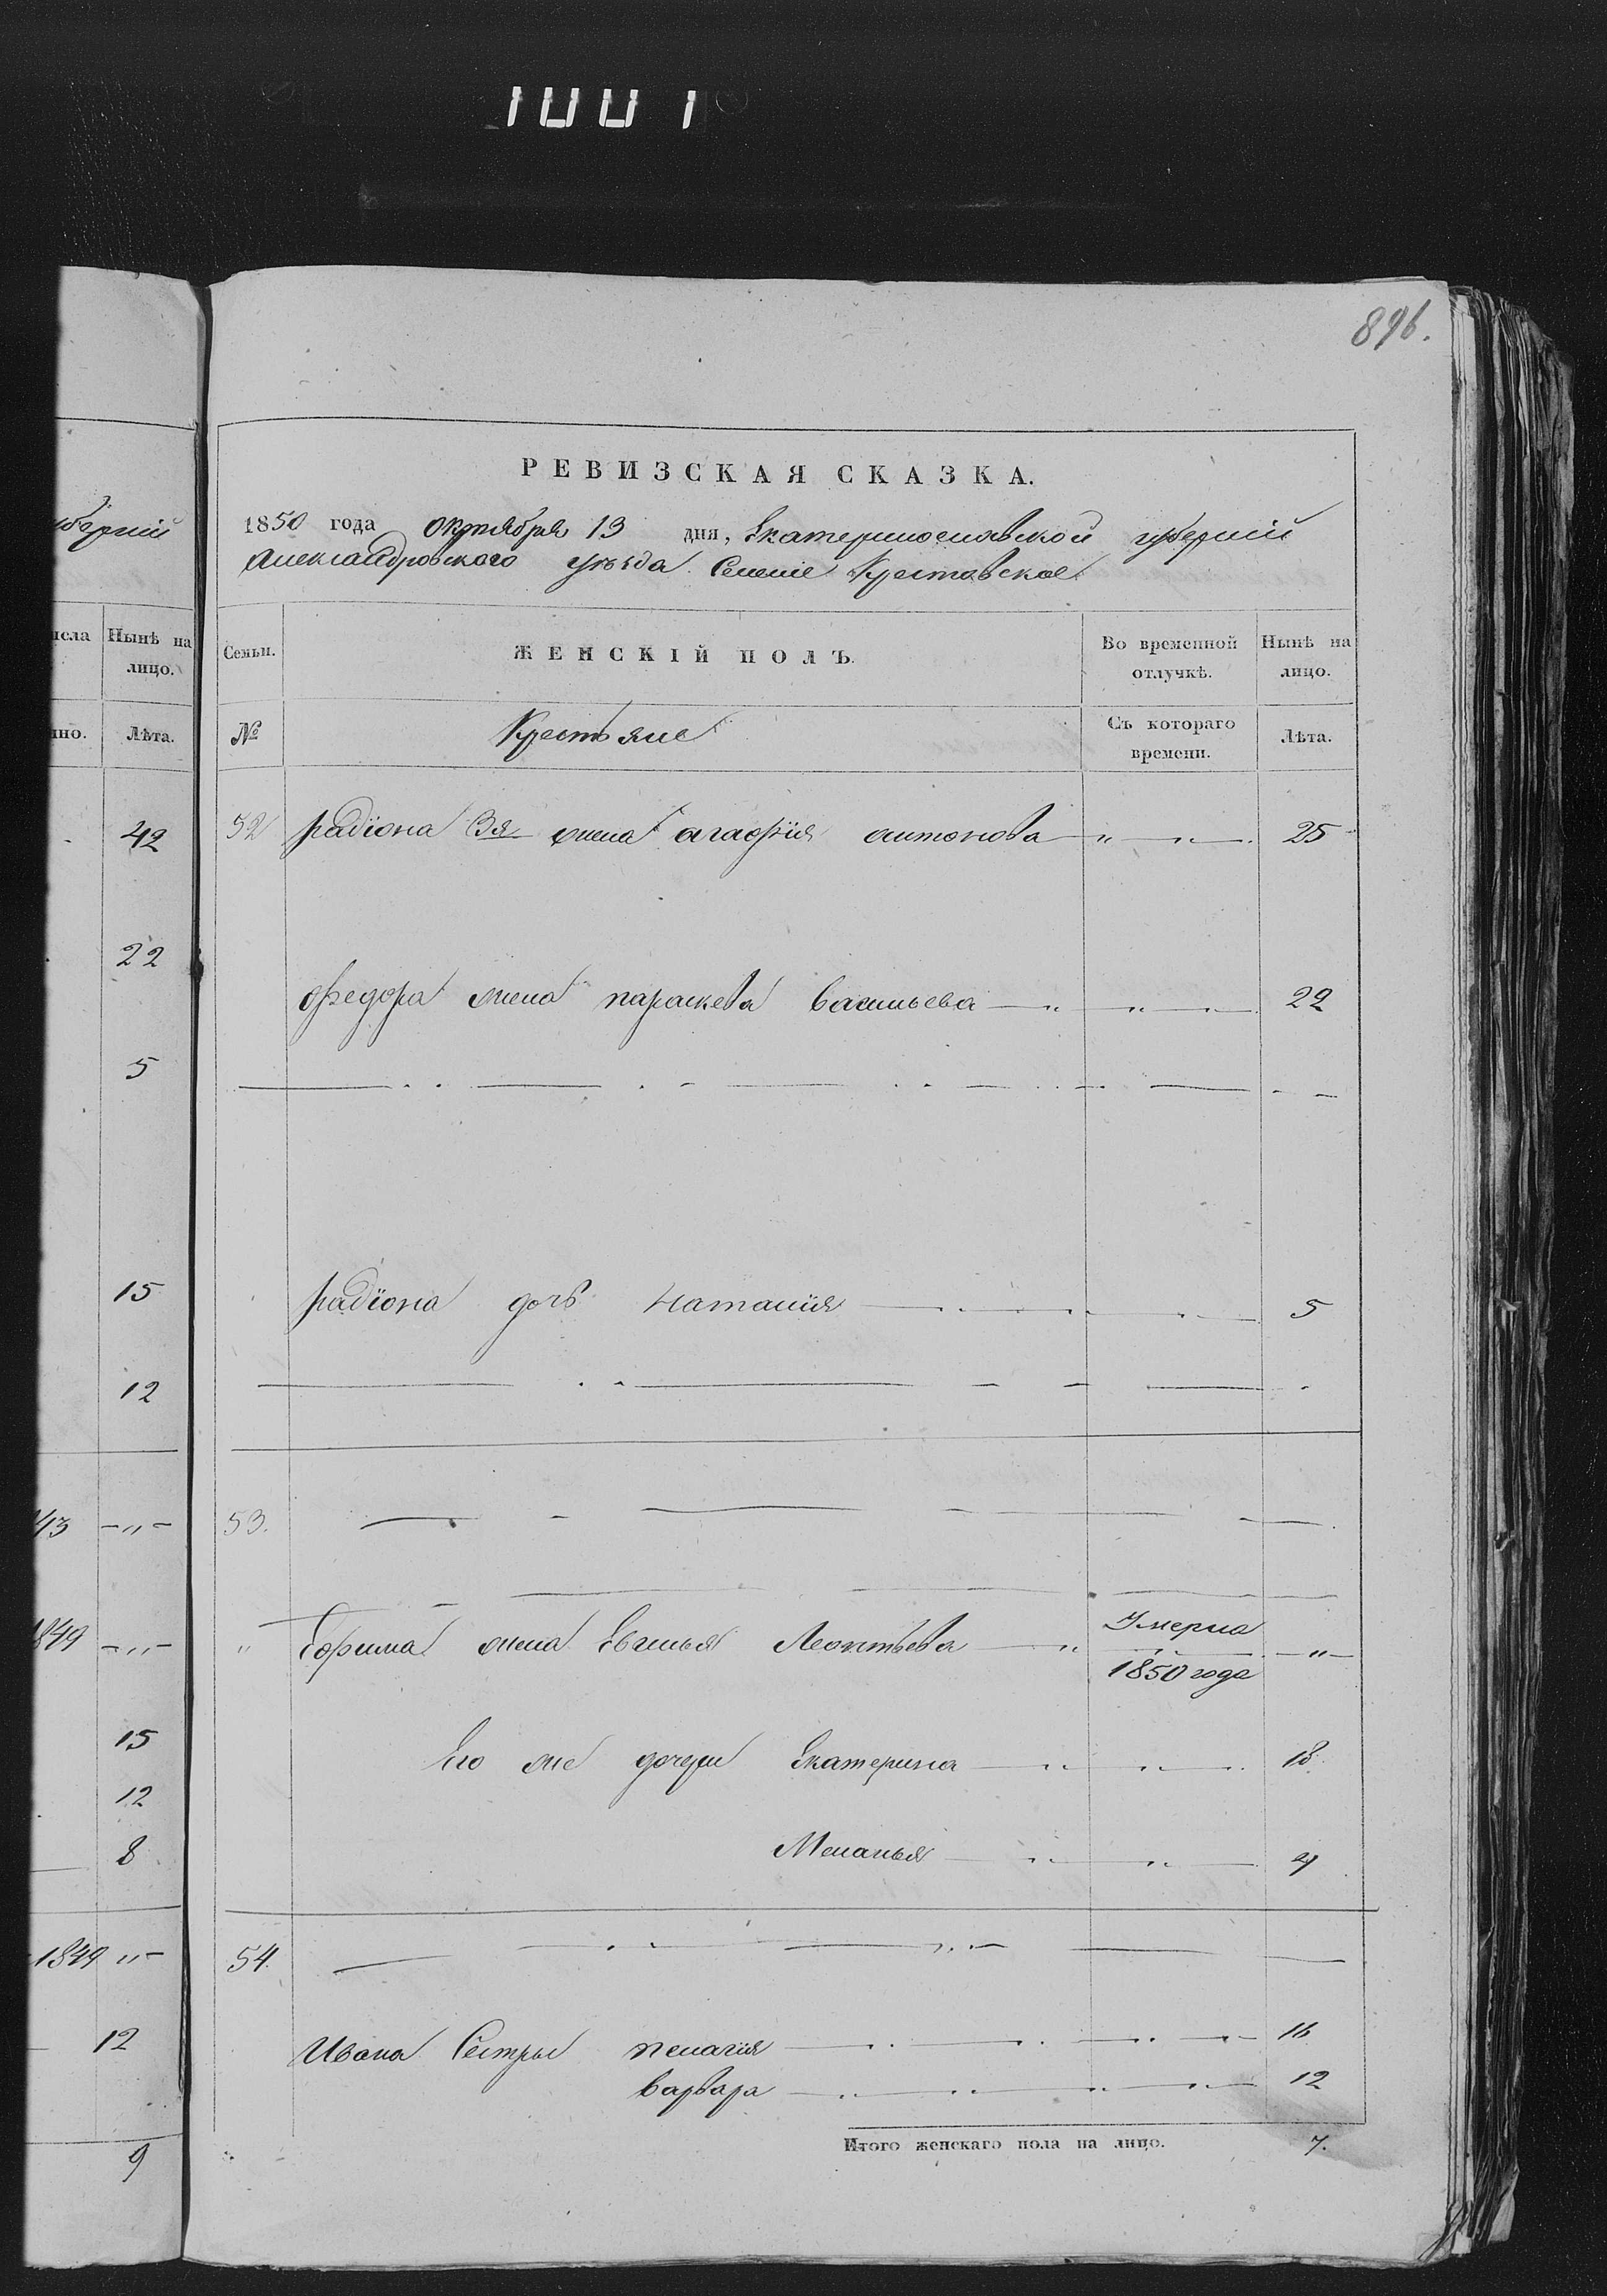 1001
896.
РЕВИЗСКАЯ СКАЗКА.
1850 года октября 13 дня, Екатеринославской губерній
Александровского уѣзда Селеніе Крестовское
губерній
Нынѣ на лицо.
Лѣта.
Семьи. ЖЕНСКІЙ ПОЛЪ. Во временной отлучкѣ. Нынѣ на лицо.
№ Крестьяне Съ котораго времени. Лѣта.
42
22
5
15
12
43 - " -
1849 - " -
15
12
8
1849 " -
12
9
52 радіона 3я жена агафія антонова " " 25
федора жена параскева васильева " " " 22
радіона дочь наталія " " " 5
53.
" Ефима жена Евгенья Леонтьева " Умерла 1850 года "
Его же дочери Екатерина " " " 18
Меланья " " 4
54.
Ивана Сестры пелагия " " " " 16
варвара " " " " 12
Итого женскаго пола на лицо. 7.